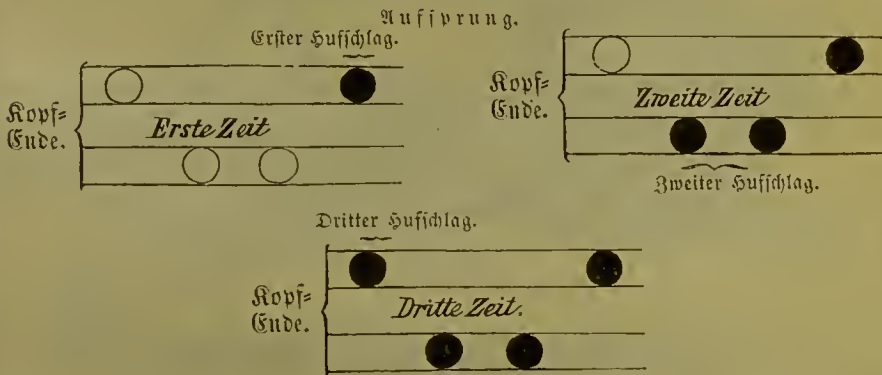 Aufsprung.
Erster Hufschlag.
Kopf=
Ende.
Erste Zeit
Kopf=
Ende.
Zweite Zeit
Zweiter Hufschlag.
Dritter Hufschlag.
Kopf=
Ende.
Dritte Zeit.